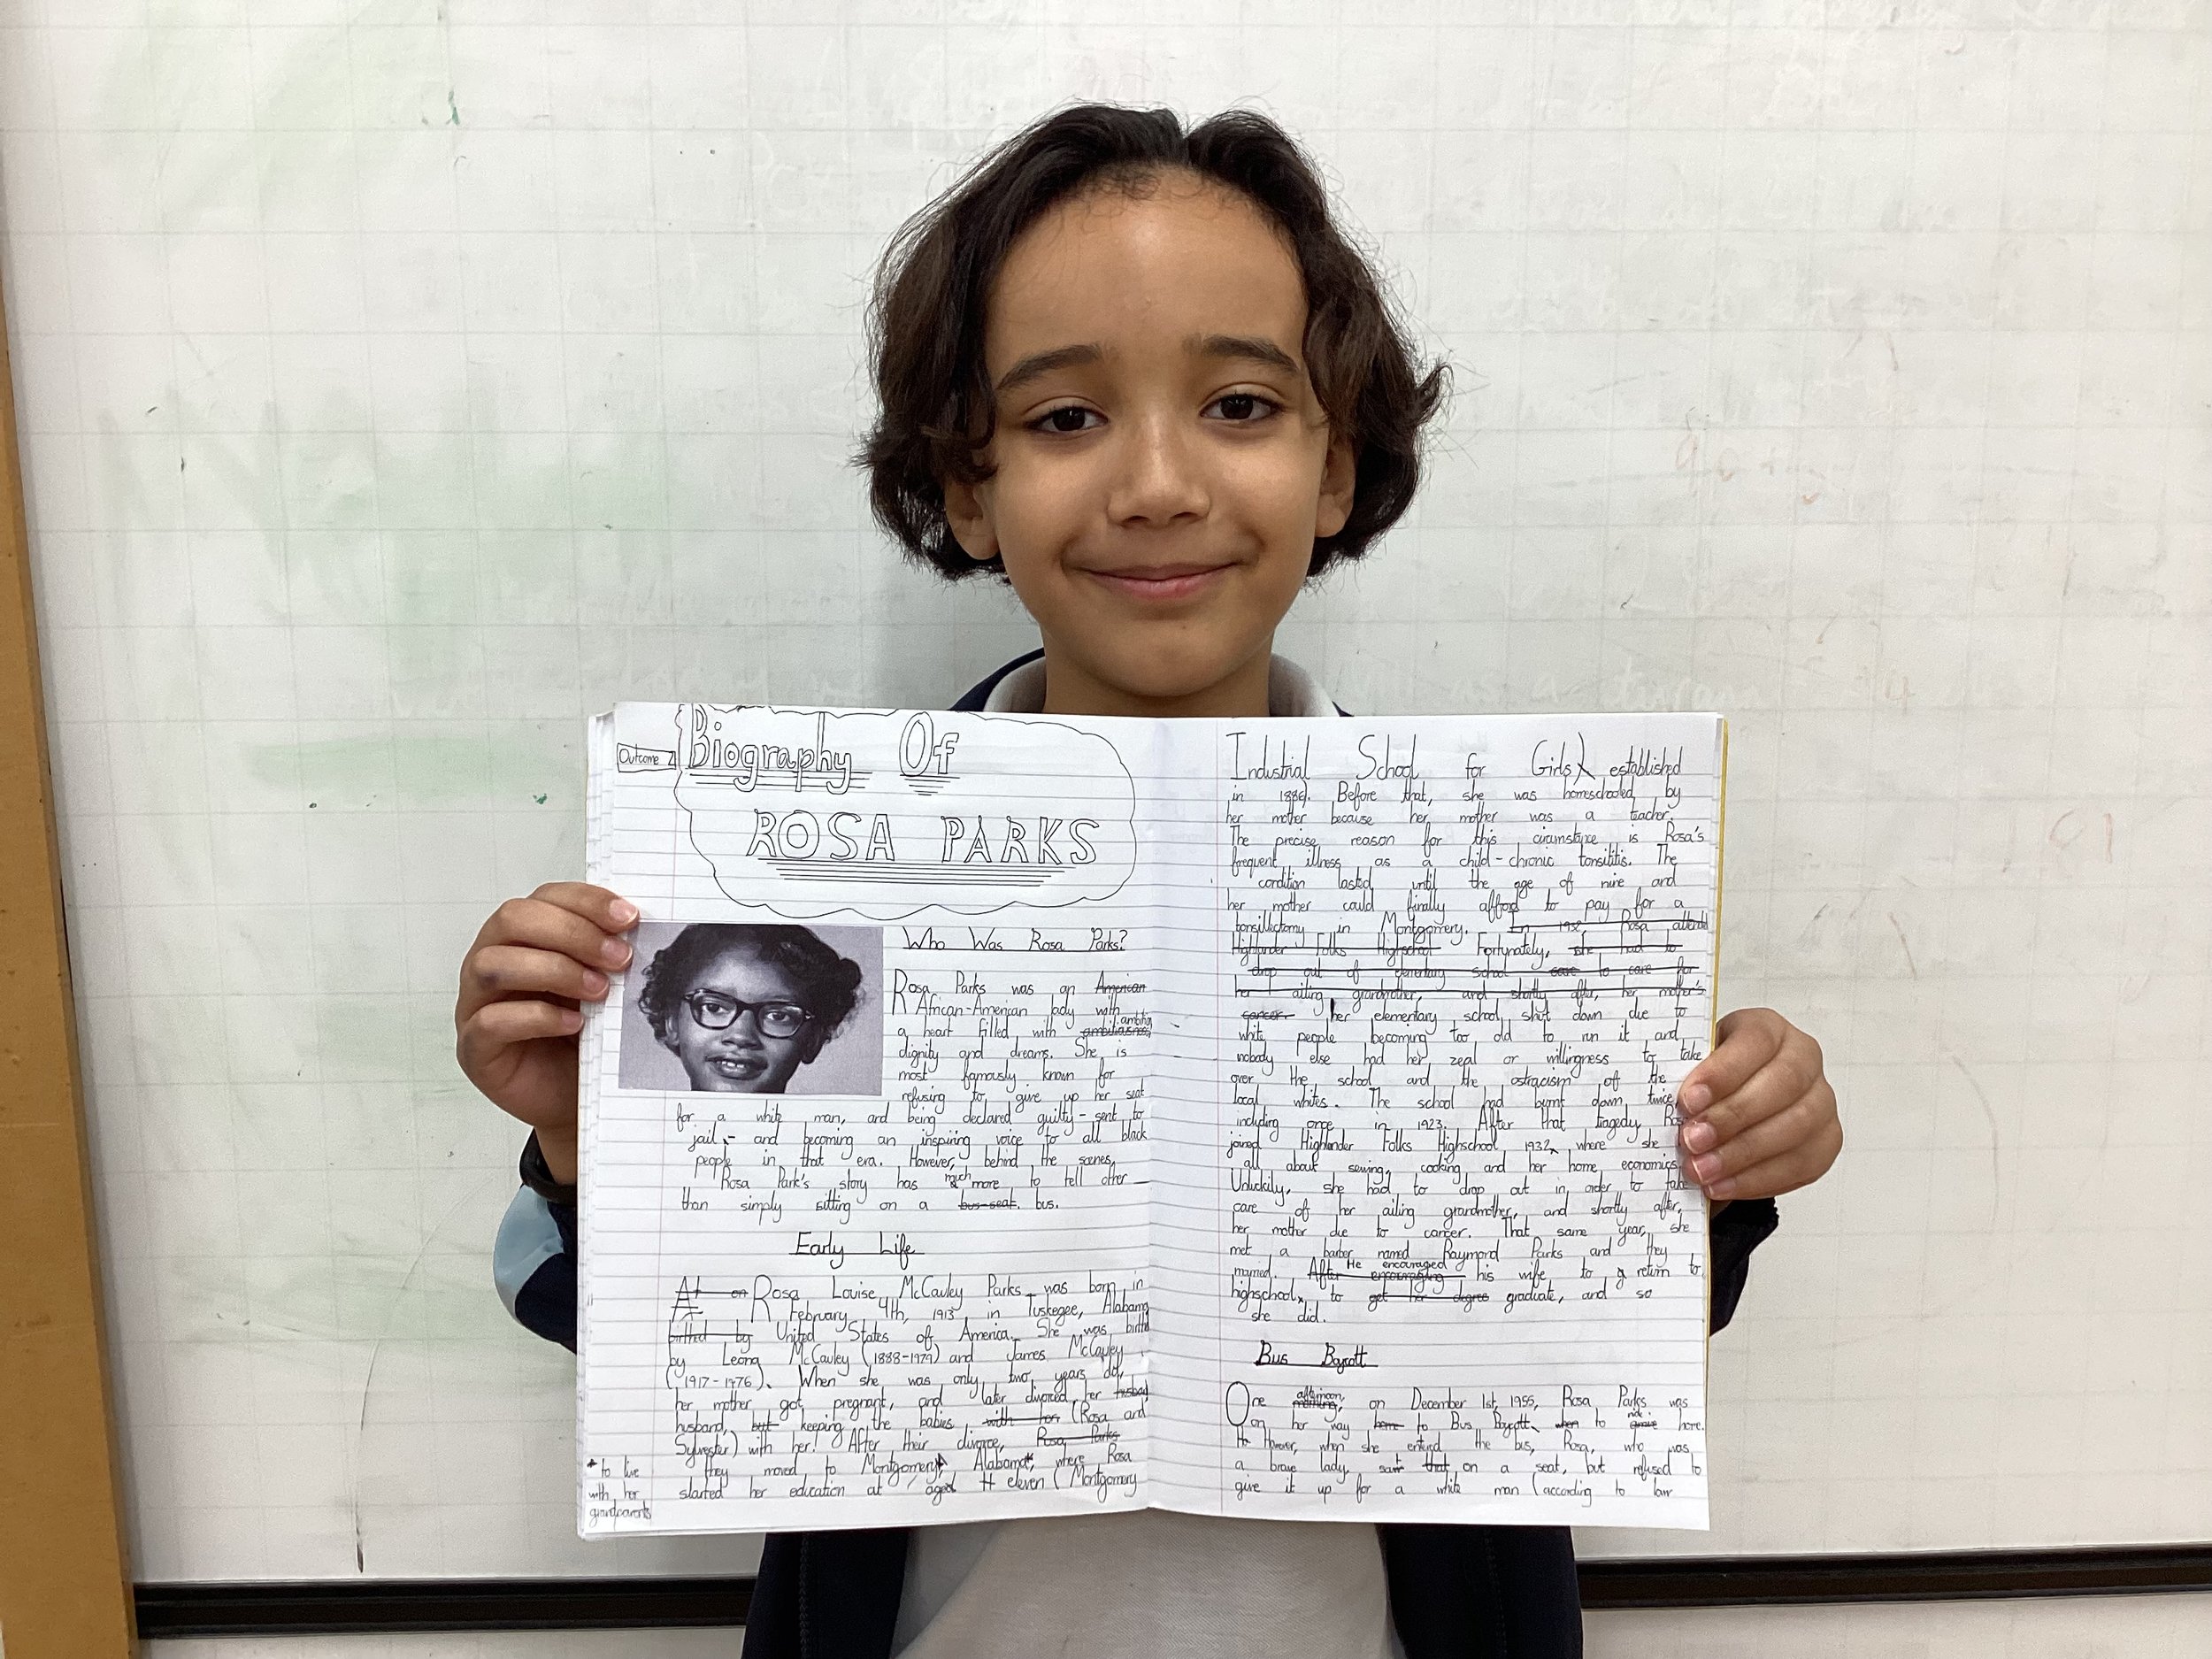 Outcome 2
Biography Of
ROSA PARKS
Who Was Rosa Parks?
Rosa Parks was an American
African-American lady with
a heart filled with ambitiousness ambition,
dignity and dreams. She is
most famously known for
refusing to give up her seat
for a white man, and being declared guilty - sent to
jail - and becoming an inspiring voice to all black
people in that era. However, behind the scenes,
Rosa Park's story has much more to tell other
than simply sitting on a bus seat. bus.
Early Life
At on Rosa Louise McCauley Parks was born in
February 4th, 1913, in Tuskegee, Alabama
birthed by United States of America. She was birthd
by Leona McCauley (1888-1979) and James McCauley
(1917-1976). When she was only two years old,
her mother got pregnant, and later divorced her husband
husband, but keeping the babies with her (Rosa and
Sylvester) with her! After their divorce, Rosa Parks
they moved to Montgomery, Alabama*, where Rosa
started her education at aged eleven (Montgomery
* to live
with her
grandparents
Industrial School for Girls) established
in 1886. Before that, she was homeschooled by
her mother because her mother was a teacher.
The precise reason for this circumstance is Rosa's
frequent illness as a child - chronic tonsilitis. The
condition lasted until the age of nine and
her mother could finally afford to pay for a
tonsillectomy in Montgomery. In 1932, Rosa attend
Highlander Folks Highschool Fortunately, she had to
drop out of elementary school care to care for
her ailing grandmother, and shortly after, her mother's
cancer. her elementary school, shut down due to
white people becoming too old to run it and
nobody else had her zeal or willingness to take
over the school and the ostracism of the
local whites. The school had burnt down twice,
including once in 1923. After that tragedy
joined Highlander Folks Highschool 1932, where she
all about sewing, cooking and her home economics.
Unluckily, she had to drop out in order to take
care of her ailing grandmother, and shortly after,
her mother due to cancer. That same year, she
met a barber named Raymond Parks and they
married. After encouraging He encouraged his wife to return to
highschool, to get her degree graduate, and so
she did.
Bus Boycott
One morning, afternoon, on December 1st, 1955, Rosa Parks was
on her way home to Bus Boycott, when to home.
However, when she entered the bus, Rosa, who was
a brave lady, sat that on a seat, but refused to
give it up for a white man (according to law